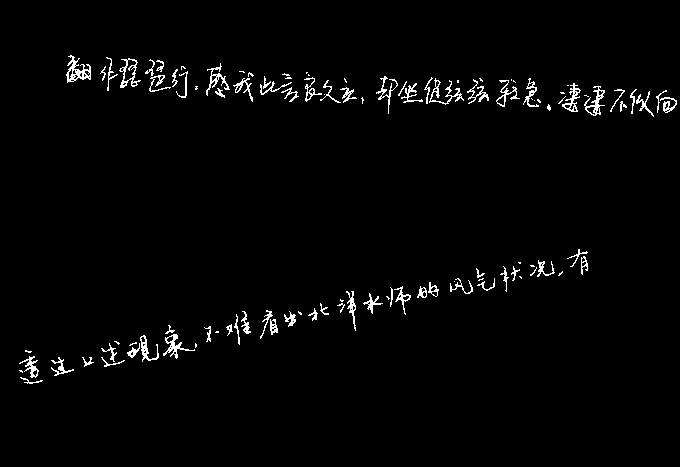 翻作琵琶行。感我此言良久立，却坐促弦弦转急。凄凄不似向
透过口述现象，不难看出北洋水师的风气状况，有